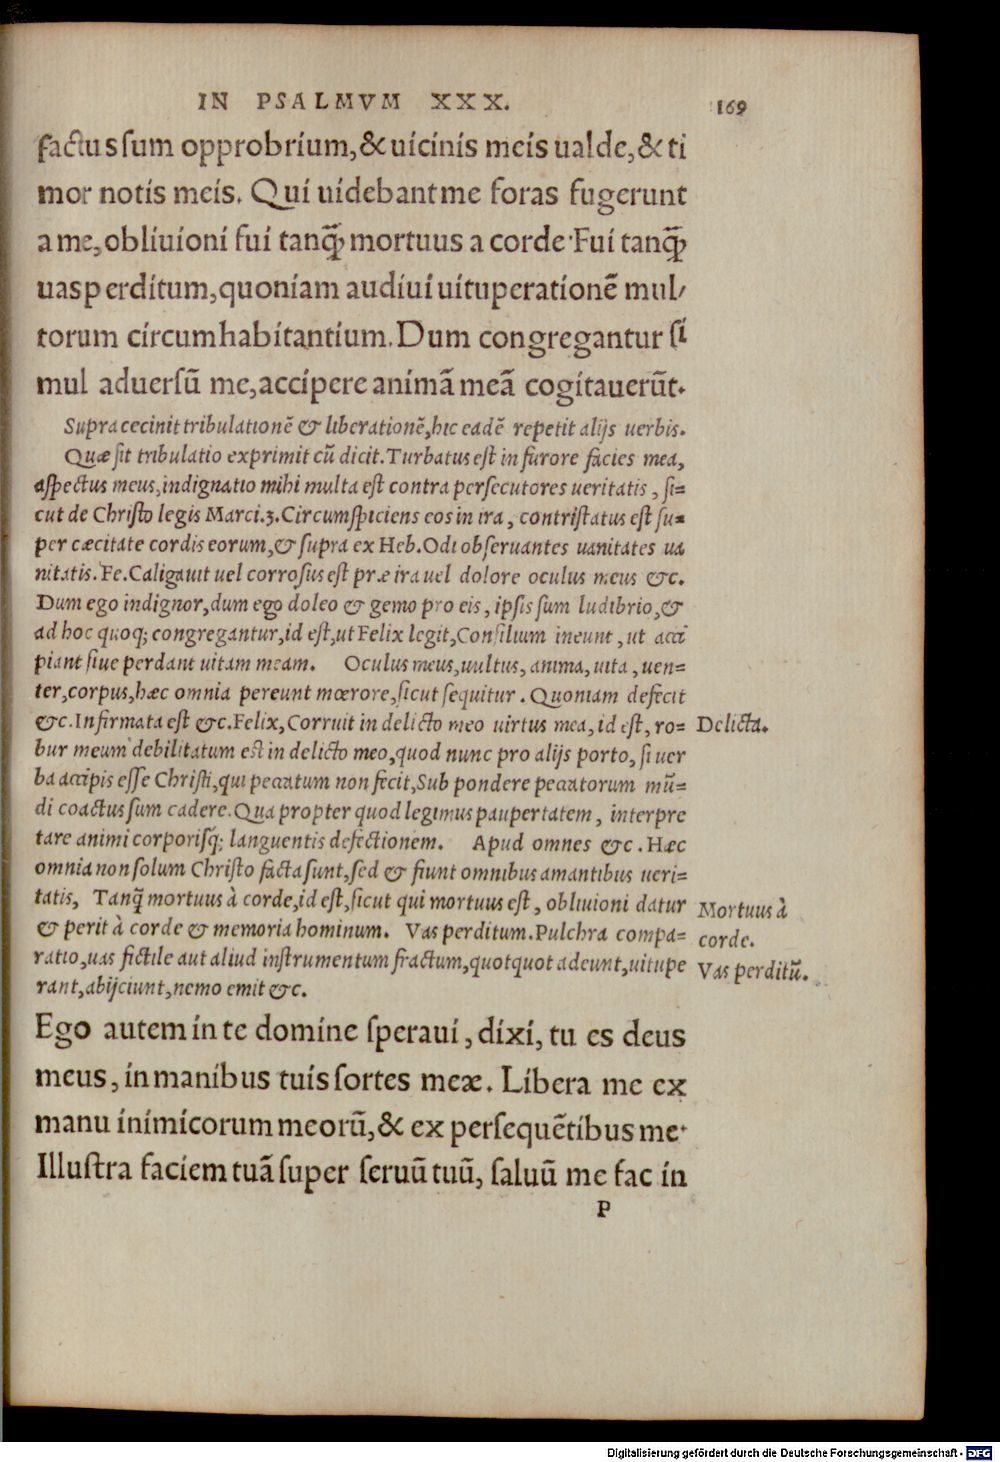 IN PSALMVM XXX. 169
factus sum opprobrium, & uicinis meis ualde, & ti
mor notis meis. Qui uidebant me foras fugerunt
a me, obliuioni fui tanq̃ mortuus a corde. Fui tanq̃
uas perditum, quoniam audiui uituperationẽ mul/
torum circumhabitantium. Dum congregantur si
mul aduersũ me, accipere animã meã cogitauerũt.
Supra cecinit tribulationẽ & liberationẽ, hic eadẽ repetit alijs uerbis.
Quæ sit tribulatio exprimit cũ dicit. Turbatus est in furore facies mea,
aspectus meus, indignatio mihi multa est contra persecutores ueritatis, si=
cut de Christo legis Marci.3. Circumspiciens eos in ira, contristatus est su=
per cæcitate cordis eorum, & supra ex Heb. Odi obseruantes uanitates ua
nitatis. Fe. Caligauit uel corrosus est præ ira uel dolore oculus meus &c.
Dum ego indignor, dum ego doleo & gemo pro eis, ipsis sum ludibrio, &
ad hoc quoq; congregantur, id est, ut Felix legit, Consilium ineunt, ut acci
piant siue perdant uitam meam. Oculus meus, uultus, anima, uita, uen=
ter, corpus, hæc omnia pereunt mœrore, sicut sequitur. Quoniam defecit
&c. Infirmata est &c. Felix, Corruit in delicto meo uirtus mea, id est, ro= Delicta.
bur meum debilitatum est in delicto meo, quod nunc pro alijs porto, si uer
ba accipis esse Christi, qui peccatum non fecit, Sub pondere peccatorum mũ=
di coactus sum cadere. Qua propter quod legimus paupertatem, interpre
tare animi corporisq; languentis defectionem. Apud omnes &c. Hæc
omnia non solum Christo facta sunt, sed & fiunt omnibus amantibus ueri=
tatis, Tanq̃ mortuus à corde, id est, sicut qui mortuus est, obliuioni datur Mortuus à
& perit à corde & memoria hominum. Vas perditum. Pulchra compa= corde.
ratio, uas fictile aut aliud instrumentum fractum, quotquot adeunt, uitupe Vas perditũ.
rant, abijciunt, nemo emit &c.
Ego autem in te domine speraui, dixi, tu es deus
meus, in manibus tuis sortes meæ. Libera me ex
manu inimicorum meorũ, & ex persequẽtibus me.
Illustra faciem tuã super seruũ tuũ, saluũ me fac in
P
Digitalisierung gefördert durch die Deutsche Forschungsgemeinschaft - DFG